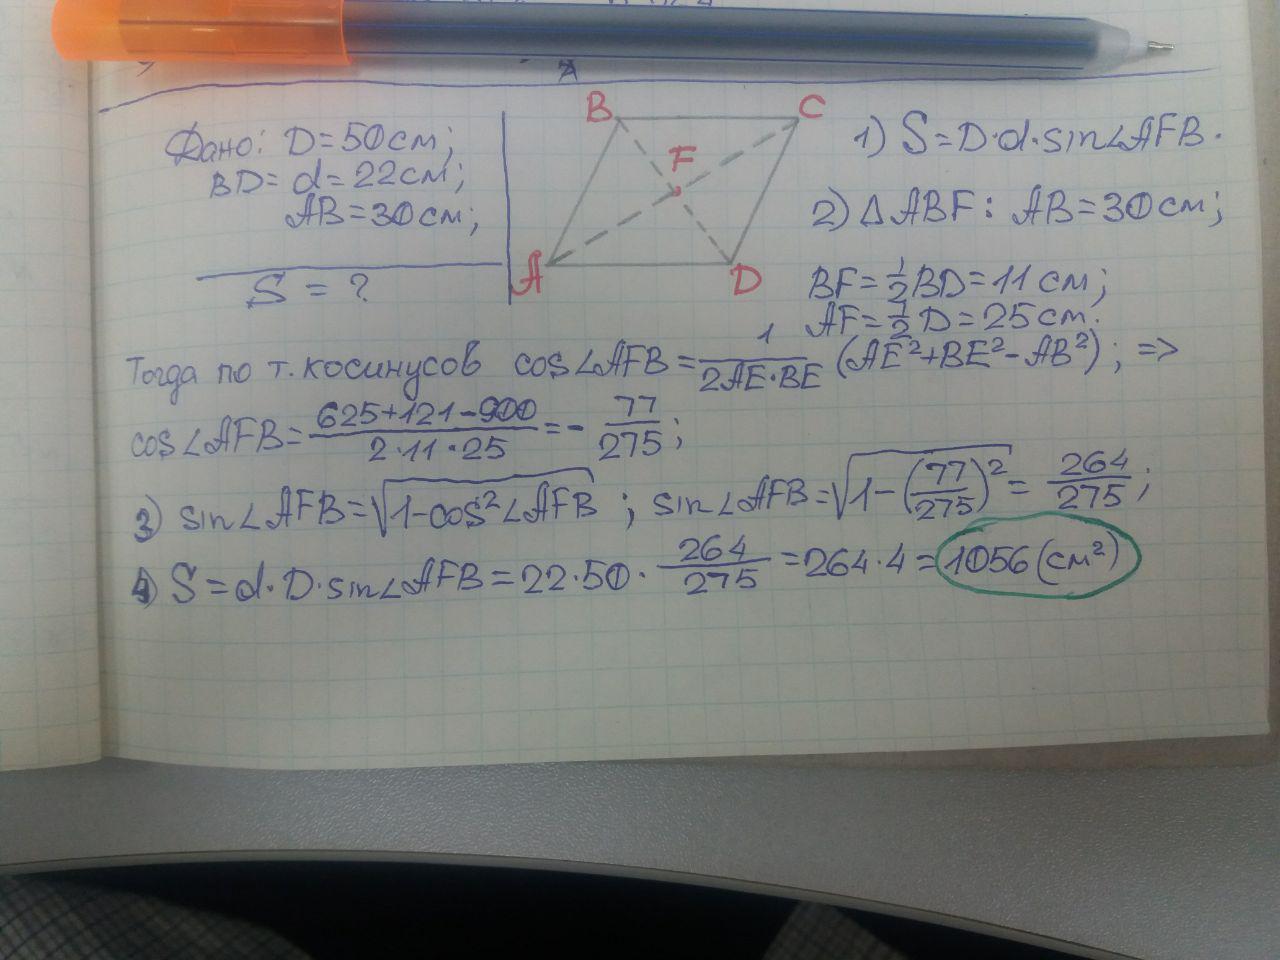 Дано: D=50см;
BD=d=22см;
AB=30см;
S=?
B C
F
A D
1) S=D·d·sin∠AFB.
2) ΔABF: AB=30см;
BF=1/2BD=11см;
AF=1/2D=25см.
Тогда по т. косинусов cos∠AFB=1/(2AE·BE)(AE²+BE²-AB²); =>
cos∠AFB=(625+121-900)/(2·11·25)=-77/275;
3) sin∠AFB=√(1-cos²∠AFB); sin∠AFB=√(1-(77/275)²)=264/275;
4) S=d·D·sin∠AFB=22·50·264/275=264·4=1056(см²)